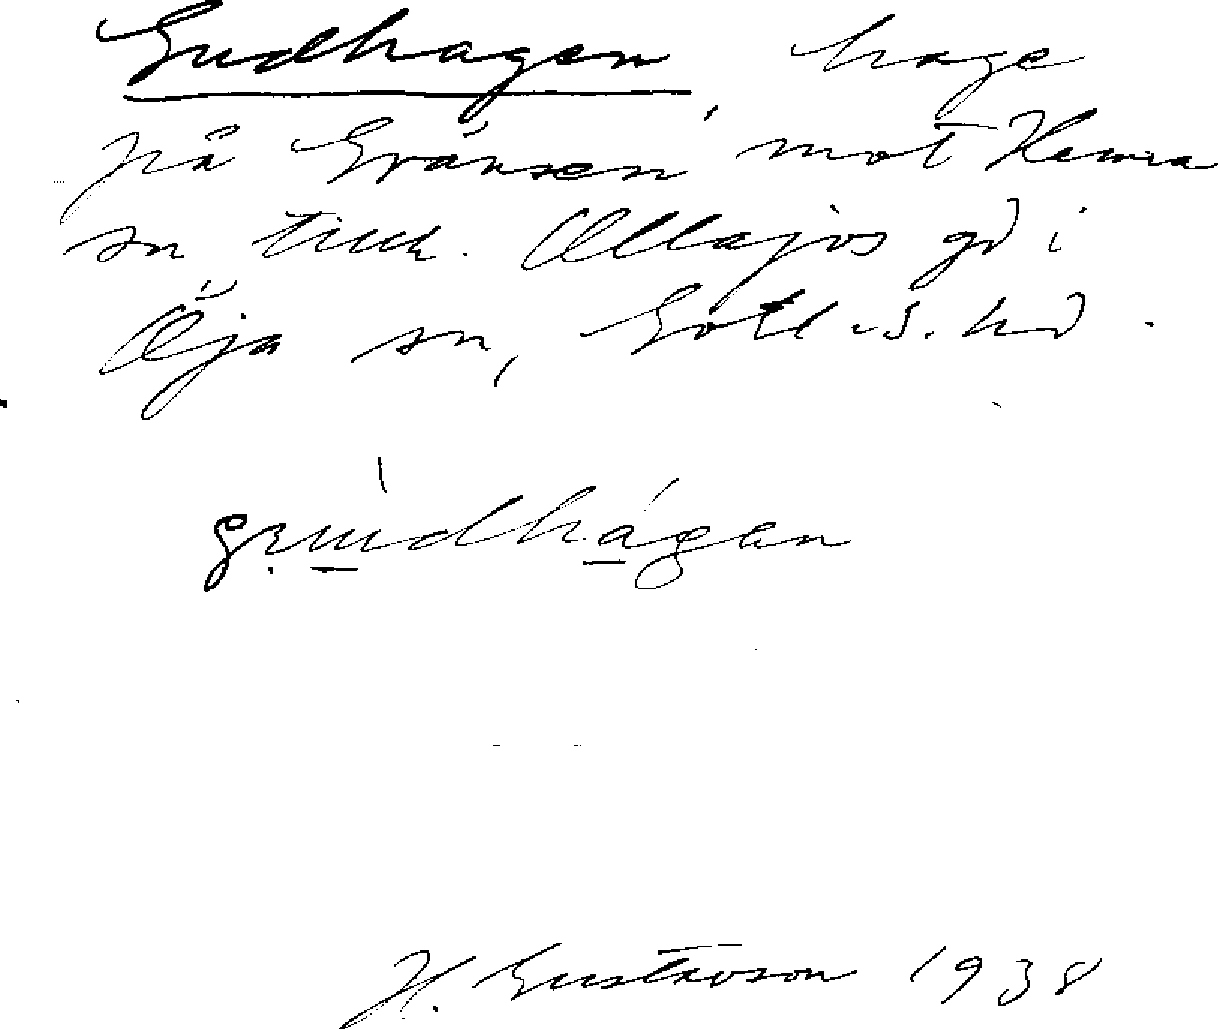 Gudhagen, hage
på Gränsen mot Hemra
sn, till. Ollajvs gd i
Öja sn, Gotl. S. hd.
gru̱dha̱gan
H. Gustavson 1938